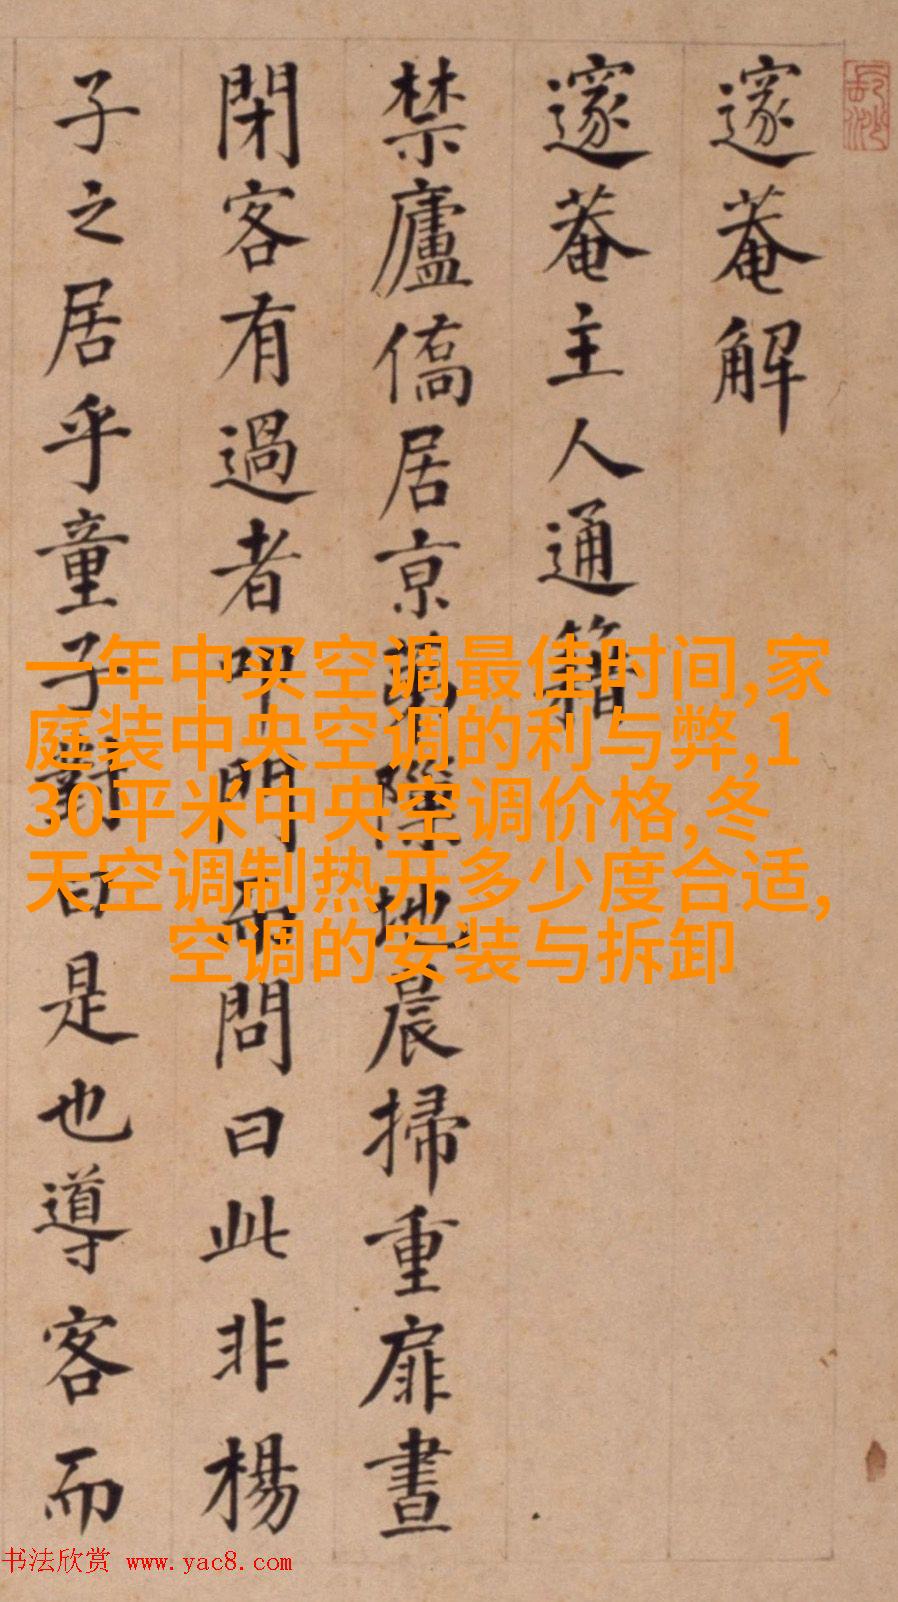 邃菴解
邃菴主人通籍
禁廬僑居京隙地晨掃重扉晝
閉客有過者叩門而問曰此非楊
子之居乎童子對曰是也導客而
一年中买空调最佳时间,家
庭装中央空调的利与弊,1
30平米中央空调价格,冬
天空调制热开多少度合适,
空调的安装与拆卸
书法欣赏 www.yac8.com